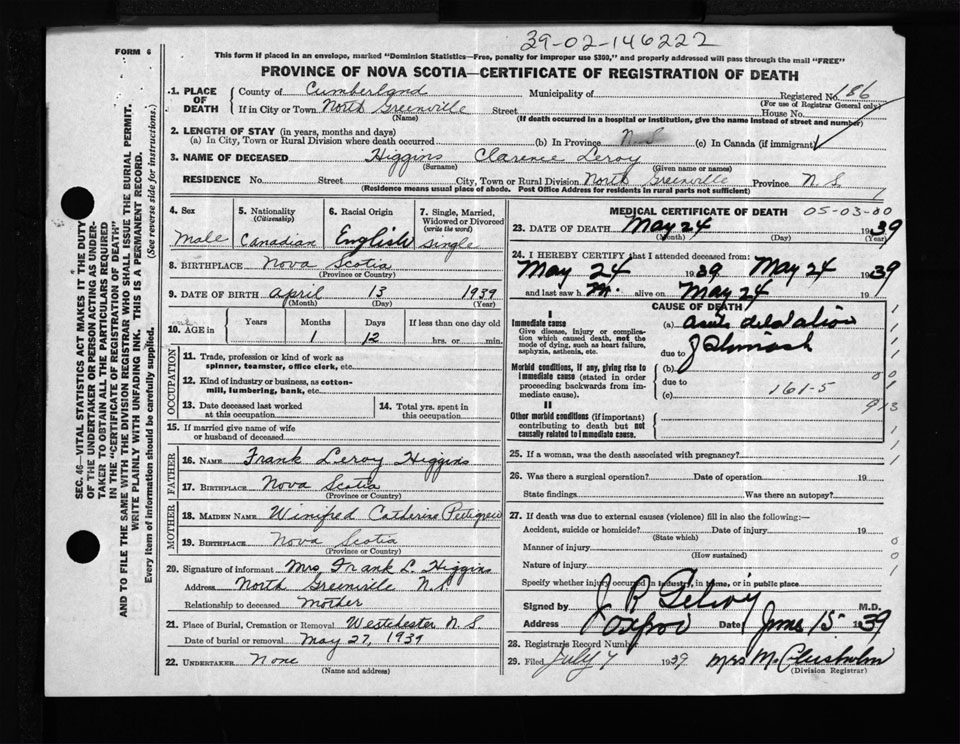 39-02-146222
FORM 6
This form if placed in an envelope, marked "Dominion Statistics—Free, penalty for improper use $300," and properly addressed will pass through the mail "FREE"
PROVINCE OF NOVA SCOTIA—CERTIFICATE OF REGISTRATION OF DEATH
SEC. 46—VITAL STATISTICS ACT MAKES IT THE DUTY
OF THE UNDERTAKER OR PERSON ACTING AS UNDER-
TAKER TO OBTAIN ALL THE PARTICULARS REQUIRED
IN THE "CERTIFICATE OF REGISTRATION OF DEATH"
AND TO FILE THE SAME WITH THE DIVISION REGISTRAR WHO SHALL ISSUE THE BURIAL PERMIT.
WRITE PLAINLY WITH UNFADING INK. THIS IS A PERMANENT RECORD.
Every item of information should be carefully supplied. (See reverse side for instructions.)
1. PLACE OF DEATH
County of Cumberland Municipality of Registered No. 186
(For use of Registrar General only)
If in City or Town North Greenville Street House No.
(Name) (If death occurred in a hospital or institution, give the name instead of street and number)
2. LENGTH OF STAY (in years, months and days)
(a) In City, Town or Rural Division where death occurred (b) In Province N.S (c) In Canada (if immigrant)
3. NAME OF DECEASED Higgins Clarence Leroy
(Surname) (Given name or names)
RESIDENCE No. Street City, Town or Rural Division North Greenville Province N.S.
(Residence means usual place of abode. Post Office Address for residents in rural parts not sufficient)
4. Sex
Male
5. Nationality
(Citizenship)
Canadian
6. Racial Origin
English
7. Single, Married,
Widowed or Divorced
(write the word)
Single
8. BIRTHPLACE Nova Scotia
(Province or Country)
9. DATE OF BIRTH April 13 1939
(Month) (Day) (Year)
10. AGE in
Years Months Days If less than one day old
1 12 hrs. or min.
OCCUPATION
11. Trade, profession or kind of work as
spinner, teamster, office clerk, etc.
12. Kind of industry or business, as cotton-
mill, lumbering, bank, etc.
13. Date deceased last worked
at this occupation
14. Total yrs. spent in
this occupation
15. If married give name of wife
or husband of deceased
FATHER
16. NAME Frank Leroy Higgins
17. BIRTHPLACE Nova Scotia
(Province or Country)
MOTHER
18. MAIDEN NAME Winifred Catherine Pettigrew
19. BIRTHPLACE Nova Scotia
(Province or Country)
20. Signature of informant Mrs. Frank L. Higgins
Address North Greenville N.S.
Relationship to deceased Mother
21. Place of Burial, Cremation or Removal Westchester N.S.
Date of burial or removal May 27, 1939
22. UNDERTAKER None
(Name and address)
MEDICAL CERTIFICATE OF DEATH 05-03-00
23. DATE OF DEATH May 24 1939
(Month) (Day) (Year)
24. I HEREBY CERTIFY that I attended deceased from:
May 24 1939 May 24 1939
and last saw h m. alive on May 24
CAUSE OF DEATH
I
Immediate cause
Give disease, injury or complica-
tion which caused death, not the
mode of dying, such as heart failure,
asphyxia, asthenia, etc.
(a) Acute dilatation
due to of Stomach
Morbid conditions, if any, giving rise to
immediate cause (stated in order
proceeding backwards from im-
mediate cause).
(b)
due to
(c) 161-5
II
Other morbid conditions (if important)
contributing to death but not
causally related to immediate cause.
25. If a woman, was the death associated with pregnancy?
26. Was there a surgical operation? Date of operation 19
State findings Was there an autopsy?
27. If death was due to external causes (violence) fill in also the following:—
Accident, suicide or homicide? Date of injury 19
(State which)
Manner of injury
(How sustained)
Nature of injury
Specify whether injury occurred in industry, in home, or in public place
Signed by M.D.
Address Oxford Date June 15 1939
28. Registrar's Record Number
29. Filed July 7 1939 Mrs M. Chisholm
(Division Registrar)